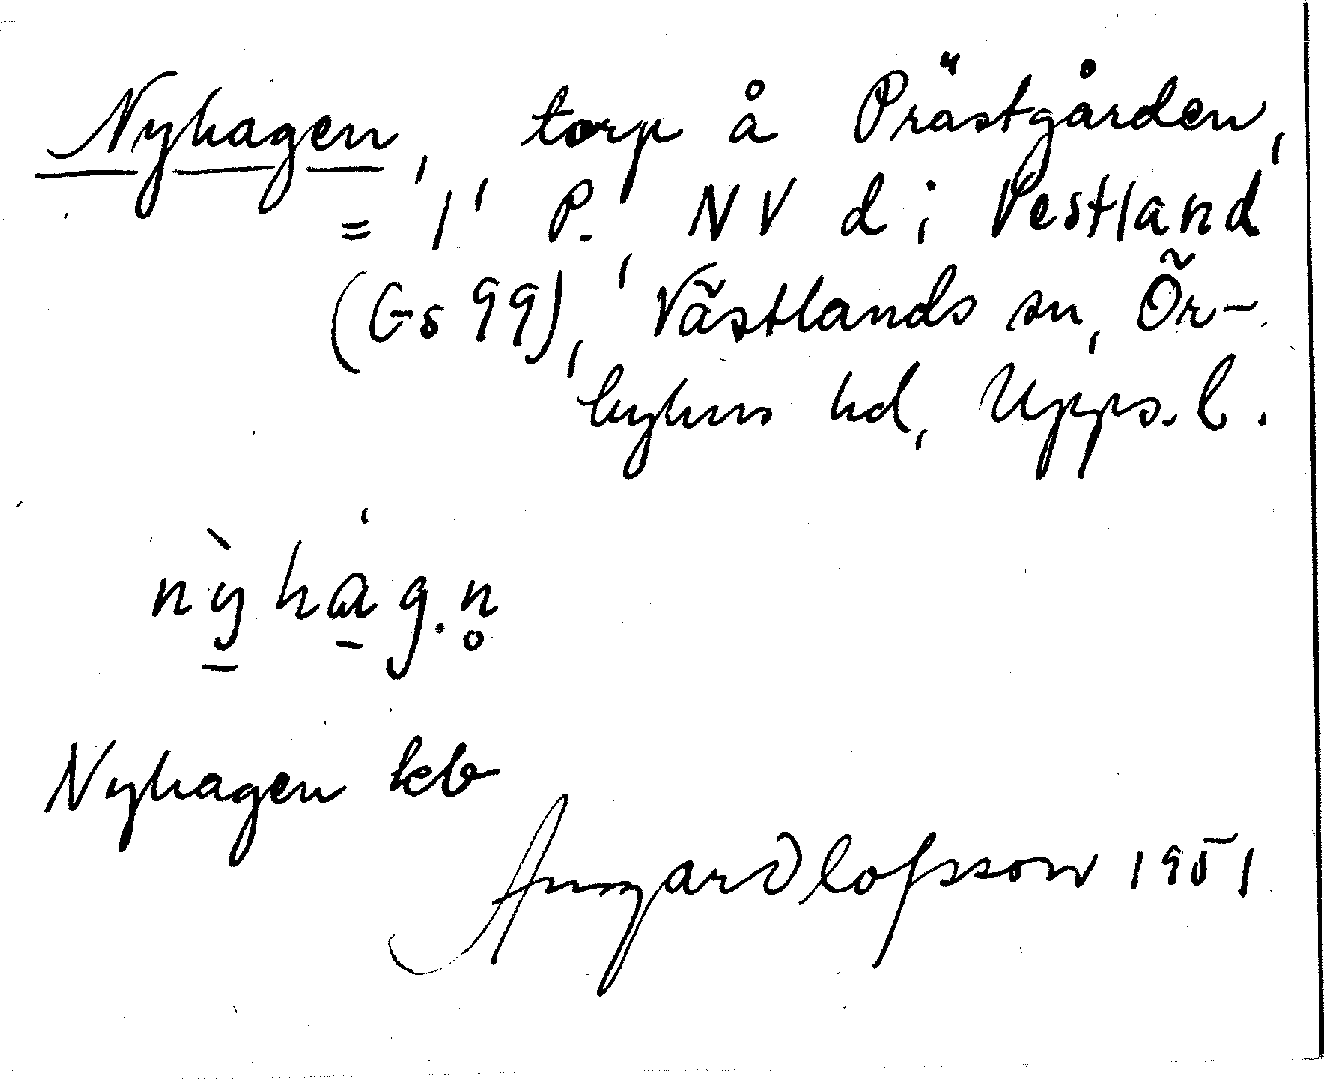 Nyhagen, torp å Prästgården,
= 1' P., NV d i Vestland
(Gs 99), Västlands sn, Ör-
byhus hd, Upps. l.
nỳhȧg.n̥
Nyhagen kb
Olofsson 1951